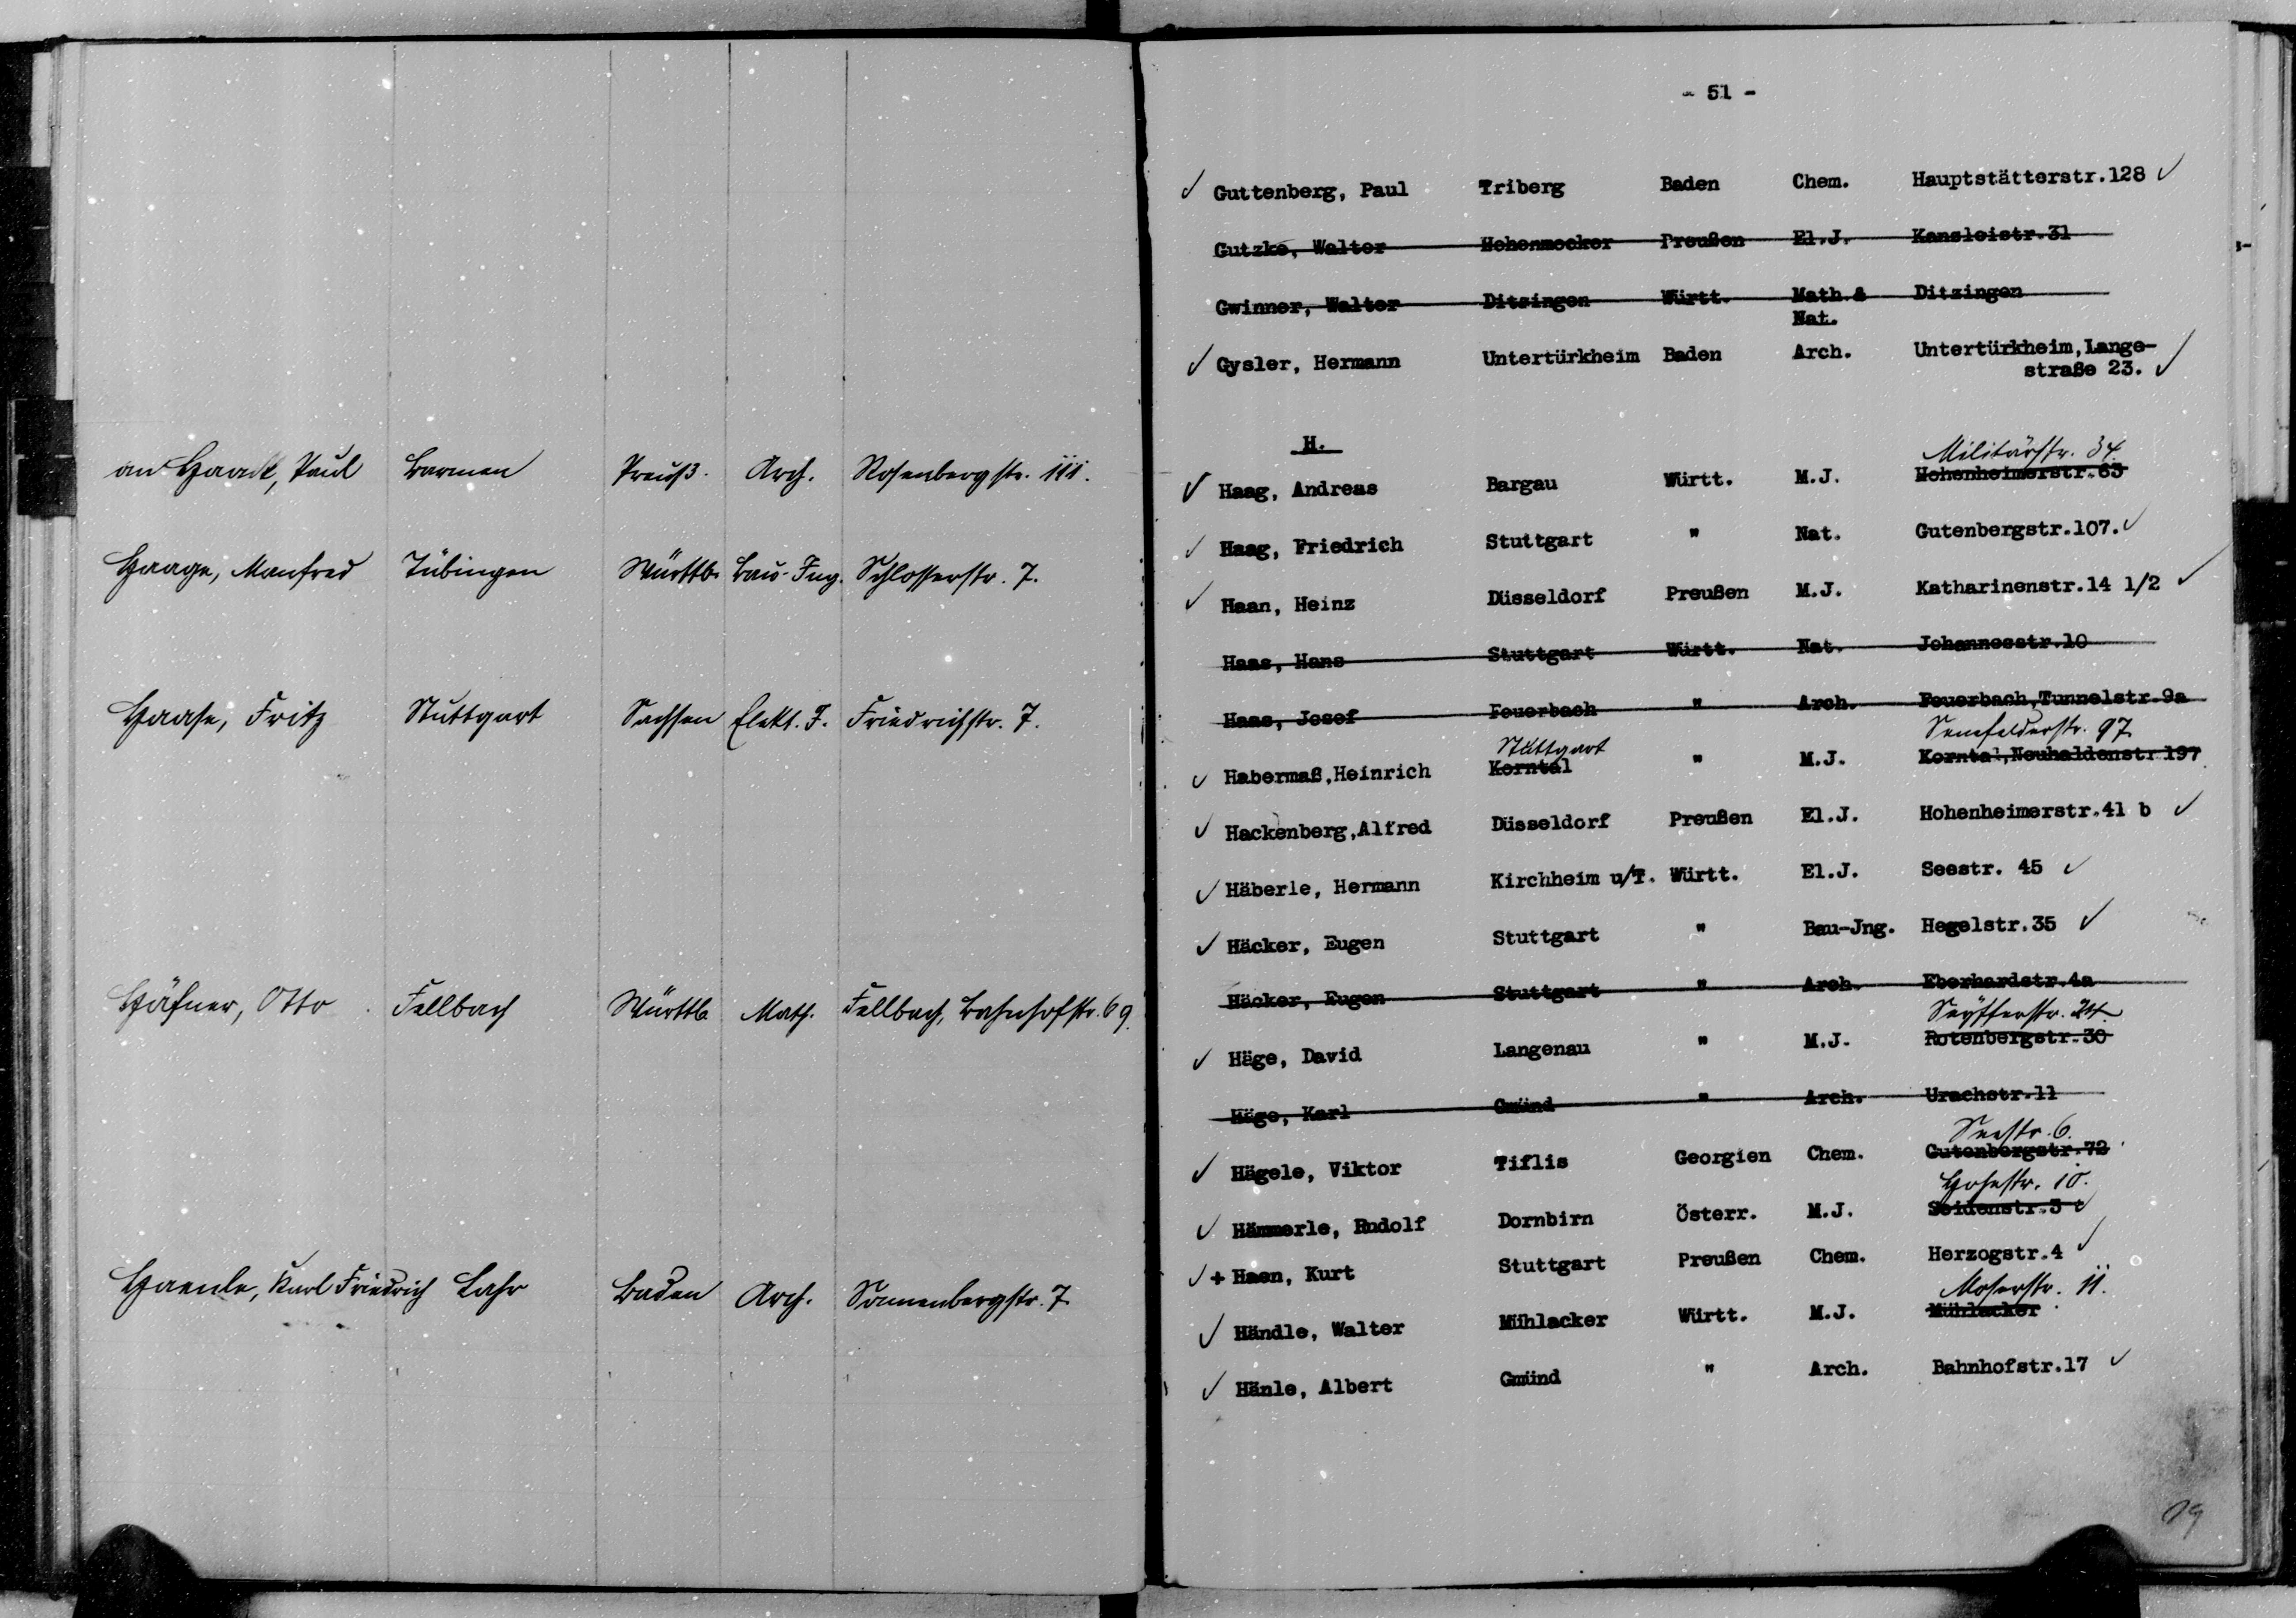 an Haack, Paul Barmen Preuß. Arch. Rosenbergstr. 111.
Haage, Manfred Tübingen Württb. Bau-Ing. Schlosserstr. 7.
Haase, Fritz Stuttgart Sachsen Elekt. I. Friedrichstr. 7.
Häfner, Otto Fellbach Württb. Math. Fellbach, Bahnhofstr. 69.
Haenle, Karl Friedrich Lahr Baden Arch. Sonnenbergstr. 7
- 51 -
✓ Guttenberg, Paul Triberg Baden Chem. Hauptstätterstr.128 ✓
Gutzke, Walter Hohenmocker Preußen El.J. Kanzleistr.31
Gwinner, Walter Ditzingen Württ. Math.& Ditzingen
Nat.
✓ Gysler, Hermann Untertürkheim Baden Arch. Untertürkheim,Lange-
straße 23. ✓
H.
Militärstr. 34.
✓ Haag, Andreas Bargau Württ. M.J. Hohenheimerstr.63
✓ Haag, Friedrich Stuttgart " Nat. Gutenbergstr.107. ✓
✓ Haan, Heinz Düsseldorf Preußen M.J. Katharinenstr.14 1/2 ✓
Haas, Hans Stuttgart Württ. Nat. Johannesstr.10
Haas, Josef Feuerbach " Arch. Feuerbach,Tunnelstr.9a
Stuttgart Senefelderstr. 97
✓ Habermaß,Heinrich Korntal " M.J. Korntal,Neuhaldenstr 197
✓ Hackenberg,Alfred Düsseldorf Preußen El.J. Hohenheimerstr.41 b ✓
✓ Häberle, Hermann Kirchheim u/T. Württ. El.J. Seestr. 45 ✓
✓ Häcker, Eugen Stuttgart " Bau-Jng. Hegelstr.35 ✓
Häcker, Eugen Stuttgart " Arch. Eberhardstr.4a
Seyfferstr. 24
✓ Häge, David Langenau " M.J. Rotenbergstr.30
Häge, Karl Gmünd " Arch. Urachstr.11
Seestr. 6.
✓ Hägele, Viktor Tiflis Georgien Chem. Gutenbergstr.72
Hohestr. 10.
✓ Hämmerle, Rudolf Dornbirn Österr. M.J. Seidenstr.3 ✓
✓ + Haen, Kurt Stuttgart Preußen Chem. Herzogstr.4 ✓
Moserstr. 11.
✓ Händle, Walter Mühlacker Württ. M.J. Mühlacker
✓ Hänle, Albert Gmünd " Arch. Bahnhofstr.17 ✓